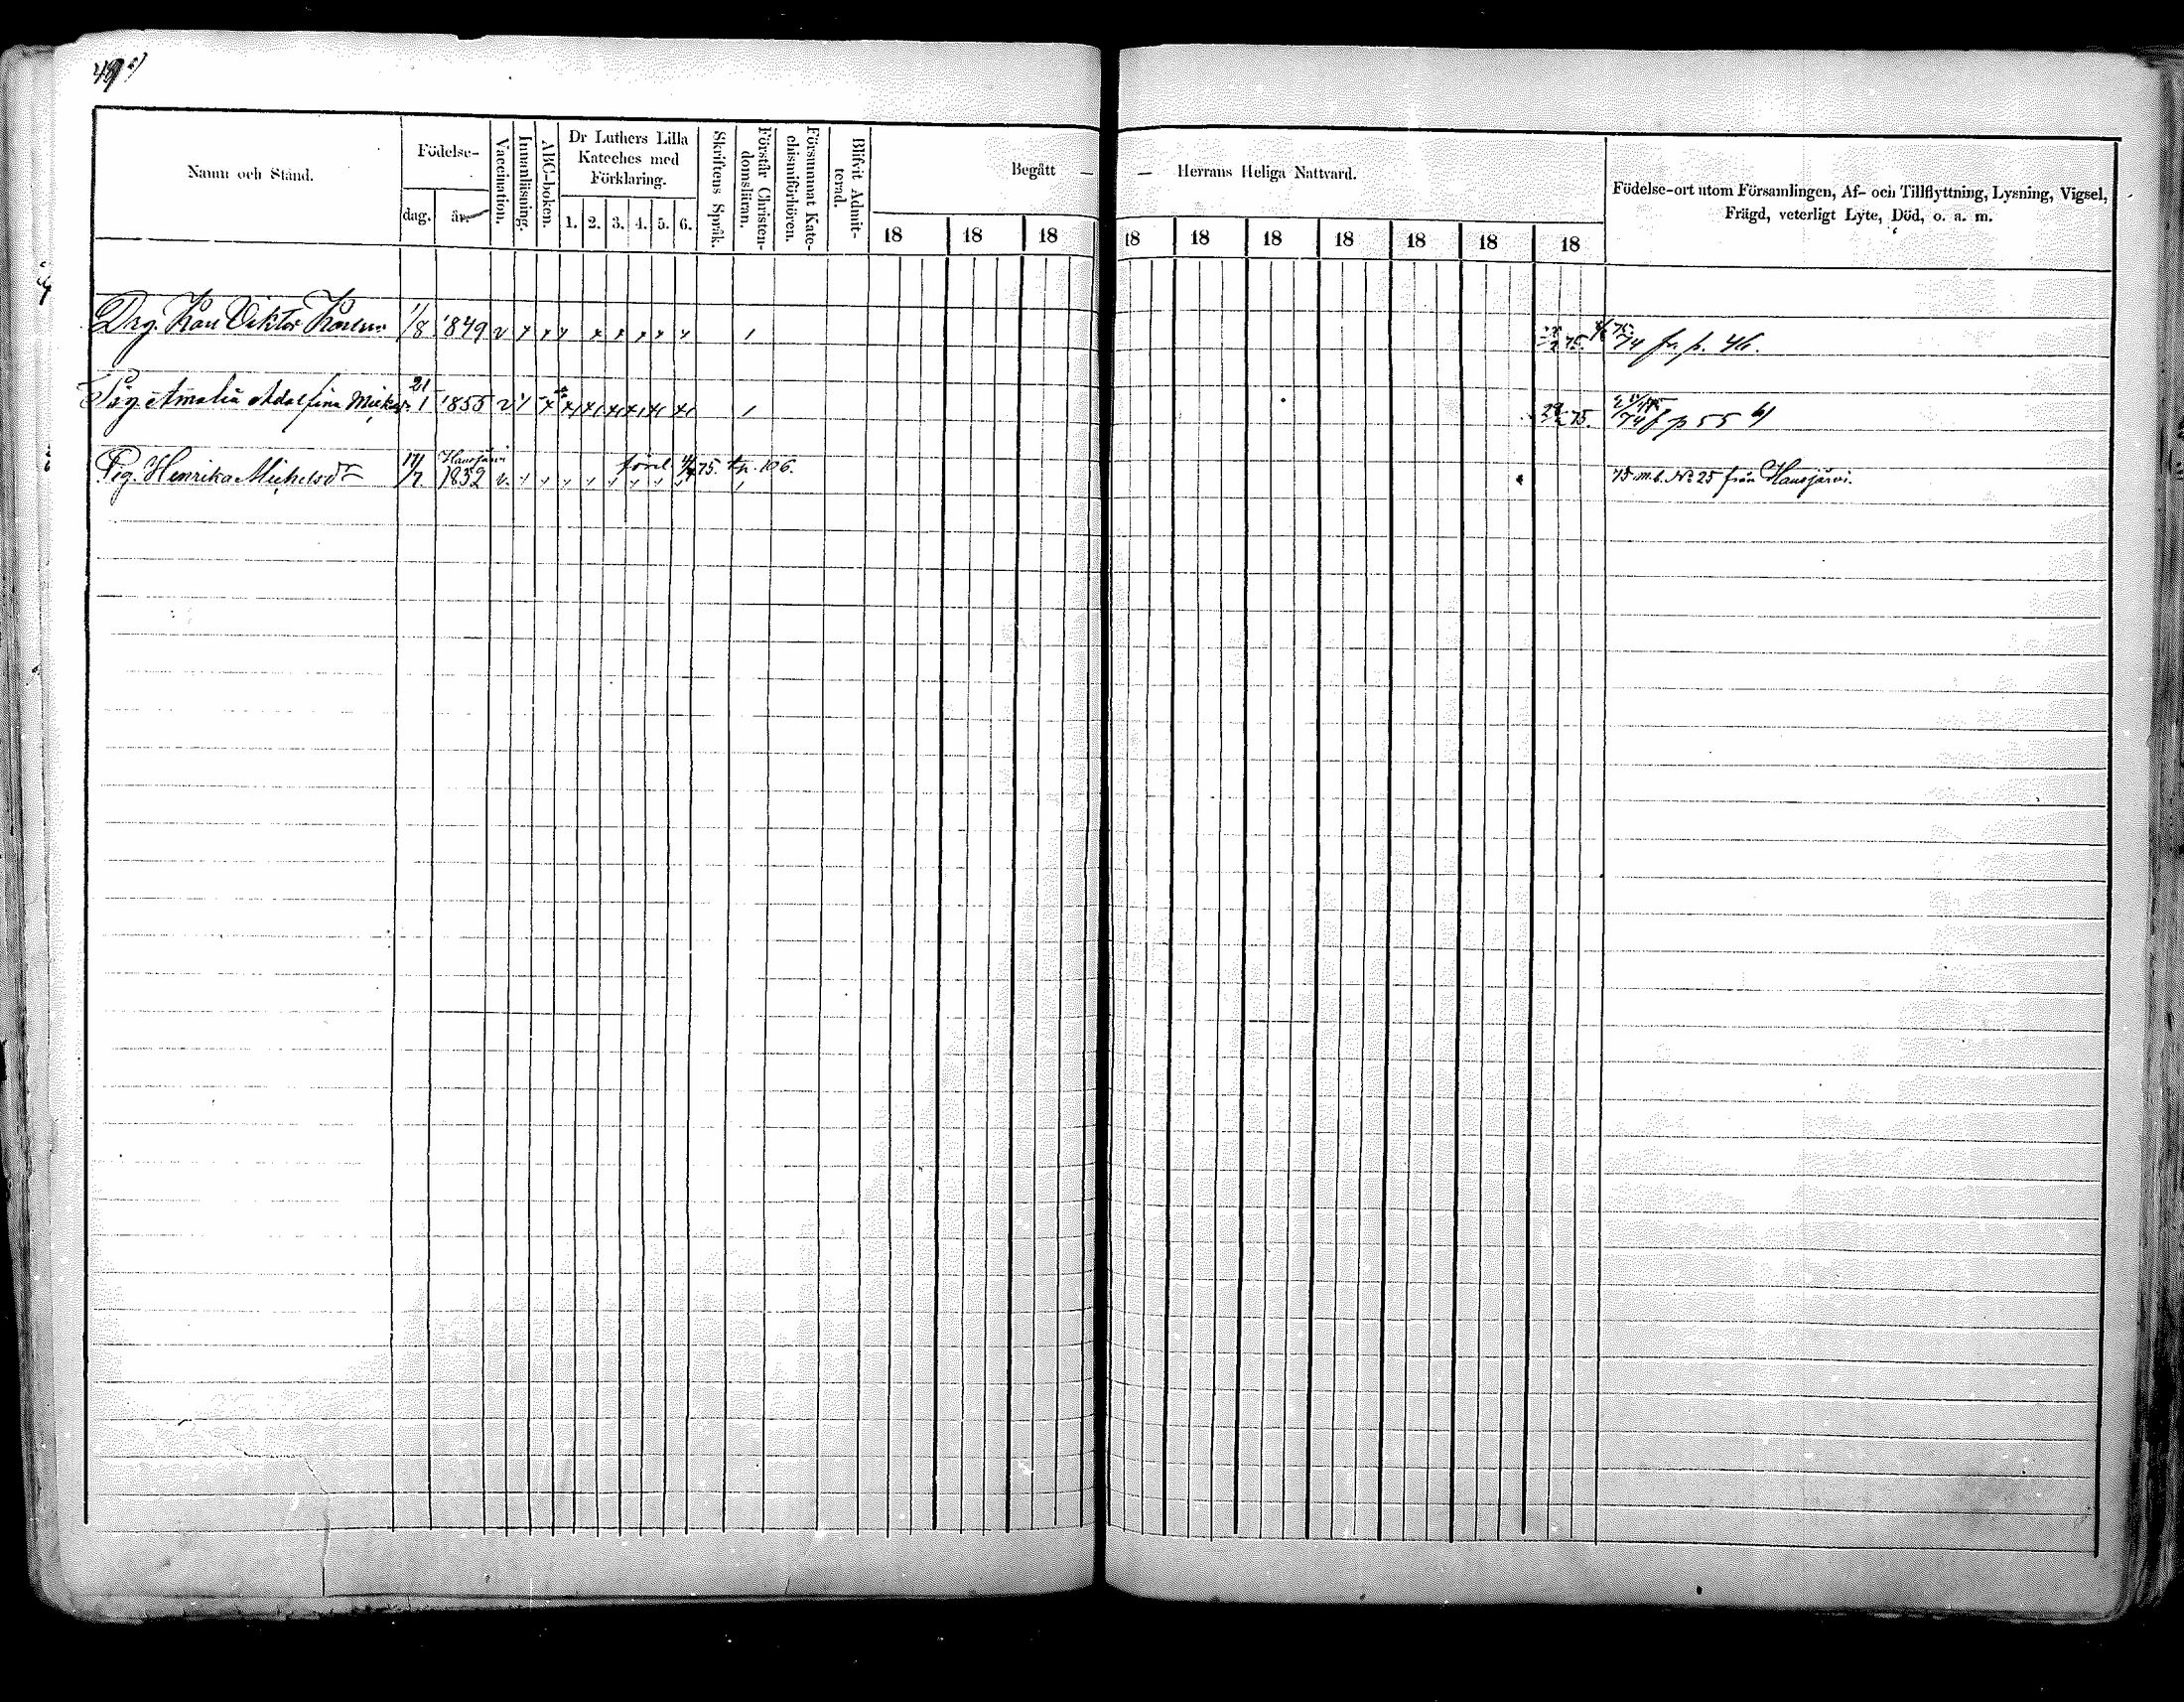 Namn och Stånd.
Födelse-
dag.
år.
Vaccination.
Innanläsning.
ABC-boken.
Dr Luthers Lilla
Kateches med
Förklaring.
1. 2. 3. 4. 5. 6.
Skriftens Språk.
Förstår Christen-
domsläran.
Försummat Kate-
chismiförhören.
Blifvit Admit-
terad.
Begått — — Herrans Heliga Nattvard.
18 18 18 18 18 18 18 18 18 18
Födelse-ort utom Församlingen, Af- och Tillflyttning, Lysning, Vigsel,
Frägd, veterligt Lyte, Död, o. a. m.
Drg. Karl Viktor 1/8 1849 74 fr. p. 46.
Pig. Amalia Adolfina 21/1 1855 74 f p 55
Hausjärvi
Pig. Henrika Michelsdr 17/7 1852 75. t p. 106. 75 m.b. No 25 från Hausjärvi.